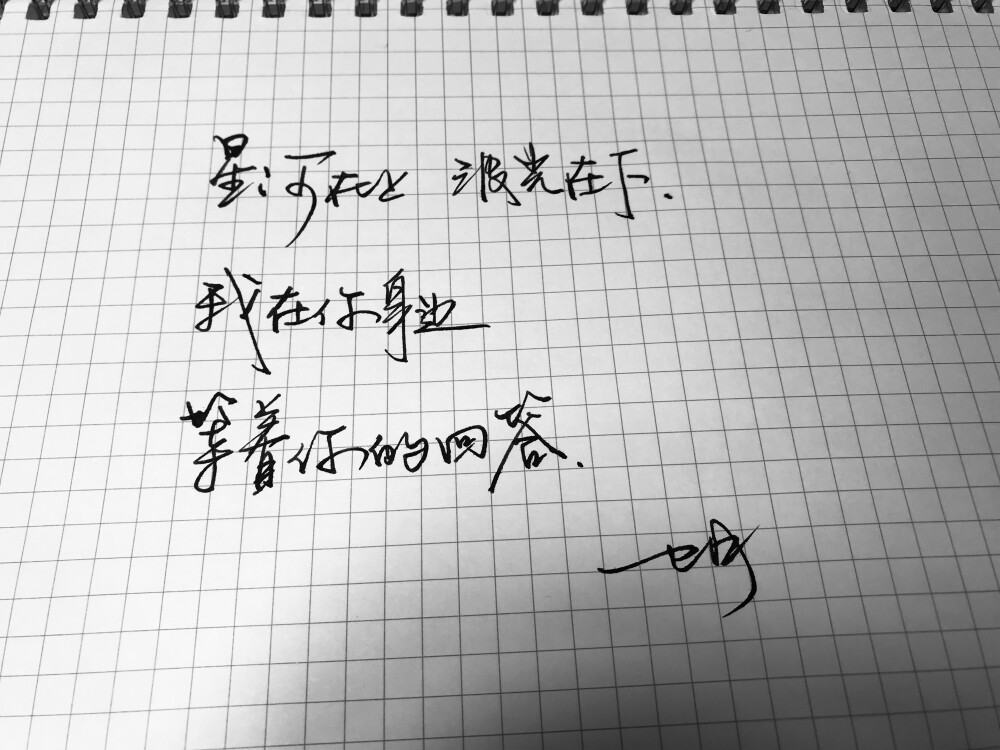 星河在上 波光在下.
我在你身边
等着你的回答.